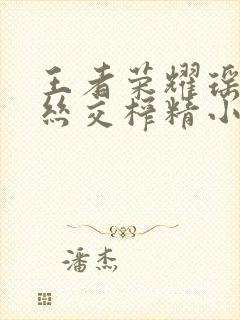 王者荣耀瑶
丝交榨精小
潘杰